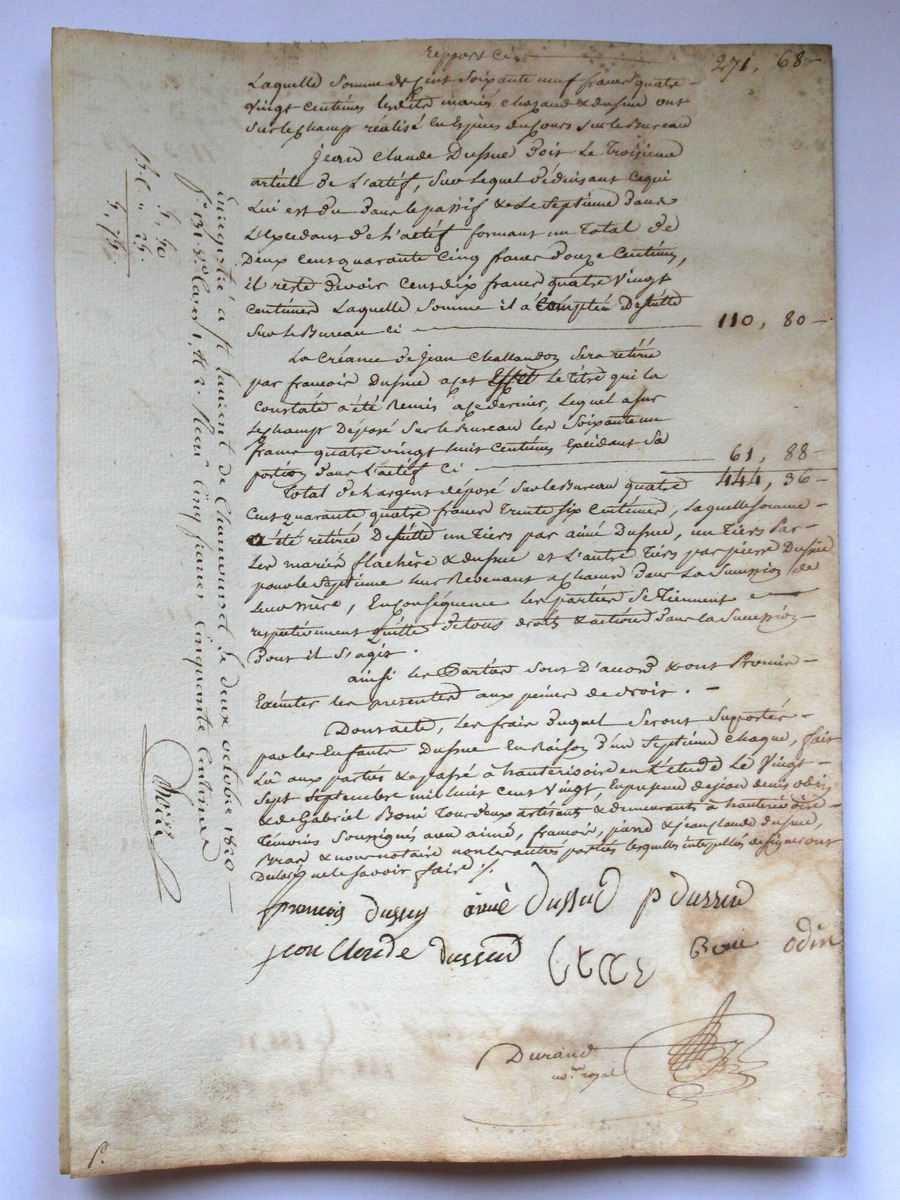 report ci 271, 68
Laquelle somme de Cent soixante neuf francs quatre
vingt centimes lesdits mariés & dussud ont
sur le champ réalisé en Espèces du Cours sur le Bureau
Jean Claude Dussud Doit Le Troisieme
article de L'actif, Sur Lequel déduisant Ce qui
Lui est du dans le passif & Le Septième dans
L'Excedant de L'actif formant un Total de
Deux cent quarante Cinq francs Douze Centimes,
il reste devoir Cent dix francs quatre Vingt
Centimes Laquelle Somme il a Comptée De suitte
Sur Le Bureau ci 110, 80
La Créance de Jean Challandon Sera retirée
par francois Dussud a cet Effet Le titre qui la
Constate a été Remis a ce dernier, Lequel a sur
Le champ Déposé Sur le Bureau les Soixante un
francs quatre vingt huit Centimes Excédant Sa
portion dans L'actif Ci 61, 88
Total de L'argent déposé Sur le Bureau quatre 444, 36
Cent quarante quatre francs Trente Six Centimes, Laquelle Somme
a été retirée De suitte un Tiers par aimé Dussud, un Tiers Par
Les mariés flachère & dussud et L'autre Tiers par pierre Dussud
pour le Septième leur Revenant a chacun Dans La Succession de
leur mère, En Conséquence les parties Se Tiennent
respectivement quitte de tous droits & actions dans la Succession
Dont il S'agit.
ainsi les Parties Sont D'accord & ont Promis
Exécuter les presentes aux peines de droit.
Dont acte, Les frais Duquel Seront Supportés
par les Enfants Dussud En Raison d'un Septième Chaque, fait
Lu aux parties & passé à hauterivoire en L'étude Le Vingt
Sept Septembre mil huit Cent Vingt, En presence de jean denis odin
& de Gabriel Boni Tous deux artisants & demeurants à hauterivoire
Témoins Soussignés avec aimé, francois, pierre & jean claude dussud,
& nous notaire non les autres parties lesquelles interpellés de signer ont
Déclaré ne le Savoir faire ./.
francois dussud aimé dussud p dussud
jean Claude dussud Boni odin
Durand
no.re royal
Enregistré à St Laurent de Chamousset le deux octobre 1820
fo 131 vo Cases 1, & 2. Reçu Cinq francs Cinquante Centimes
5, 50